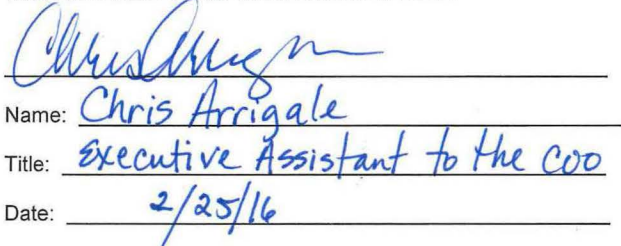 Name: Chris Arrigale
Title: Executive Assistant to the COO
Date: 2/25/16